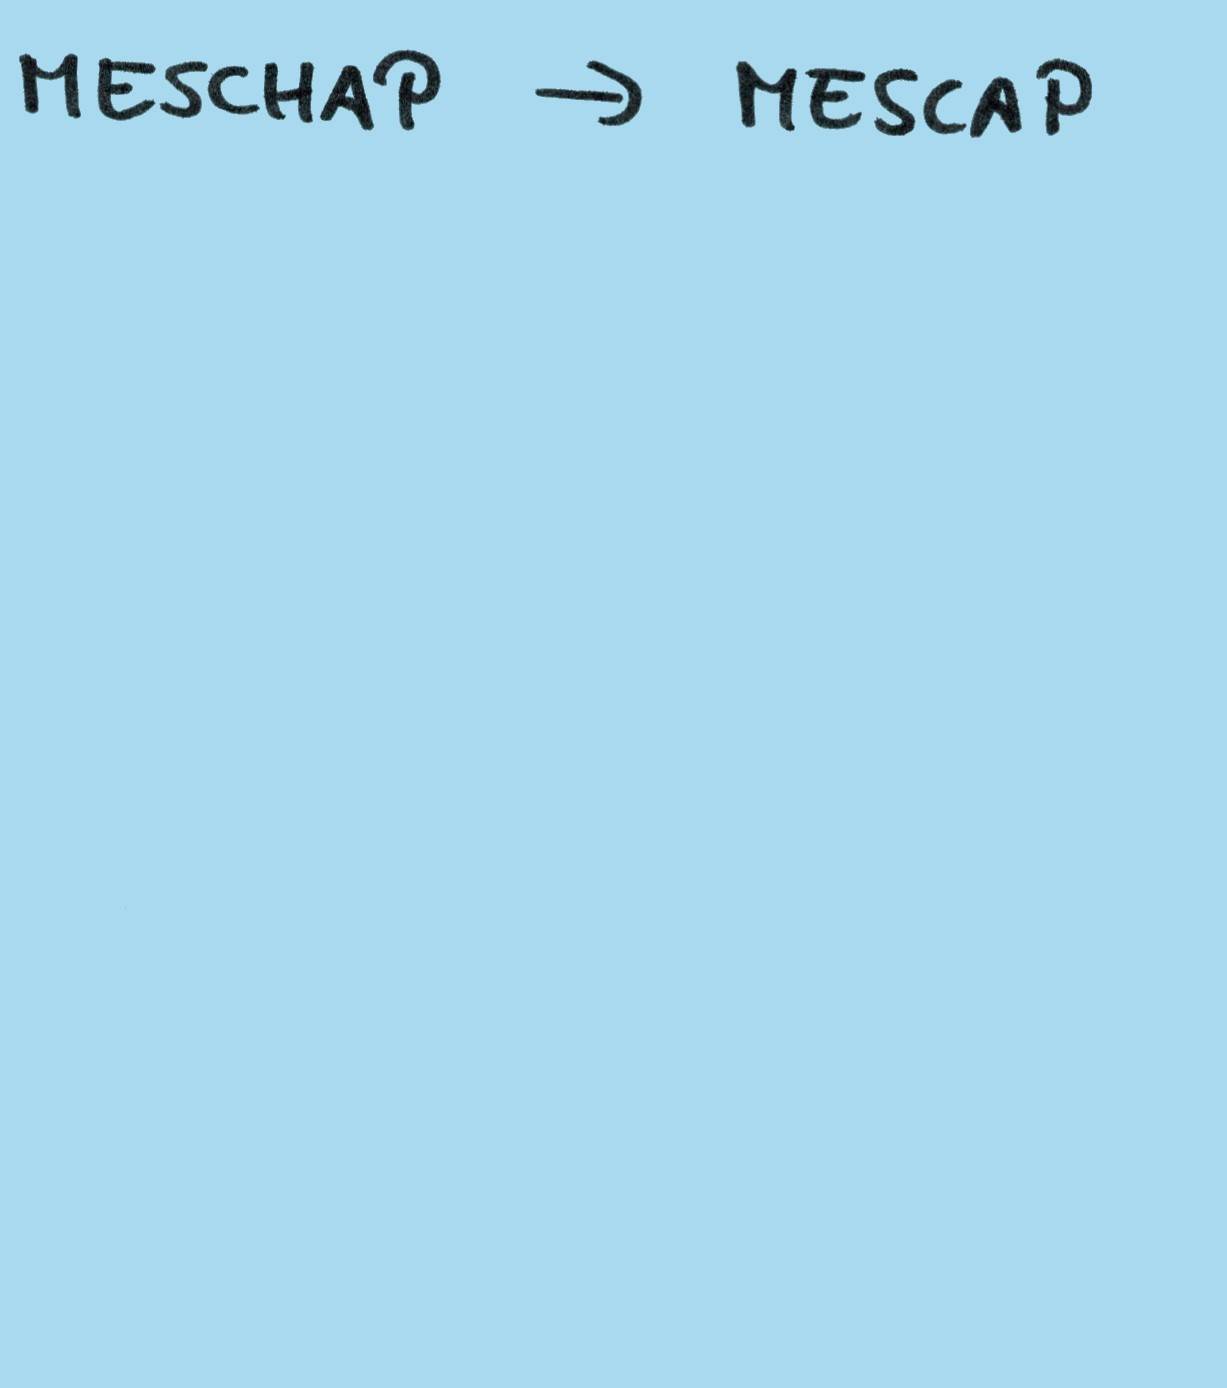 MESCHAP → MESCAP